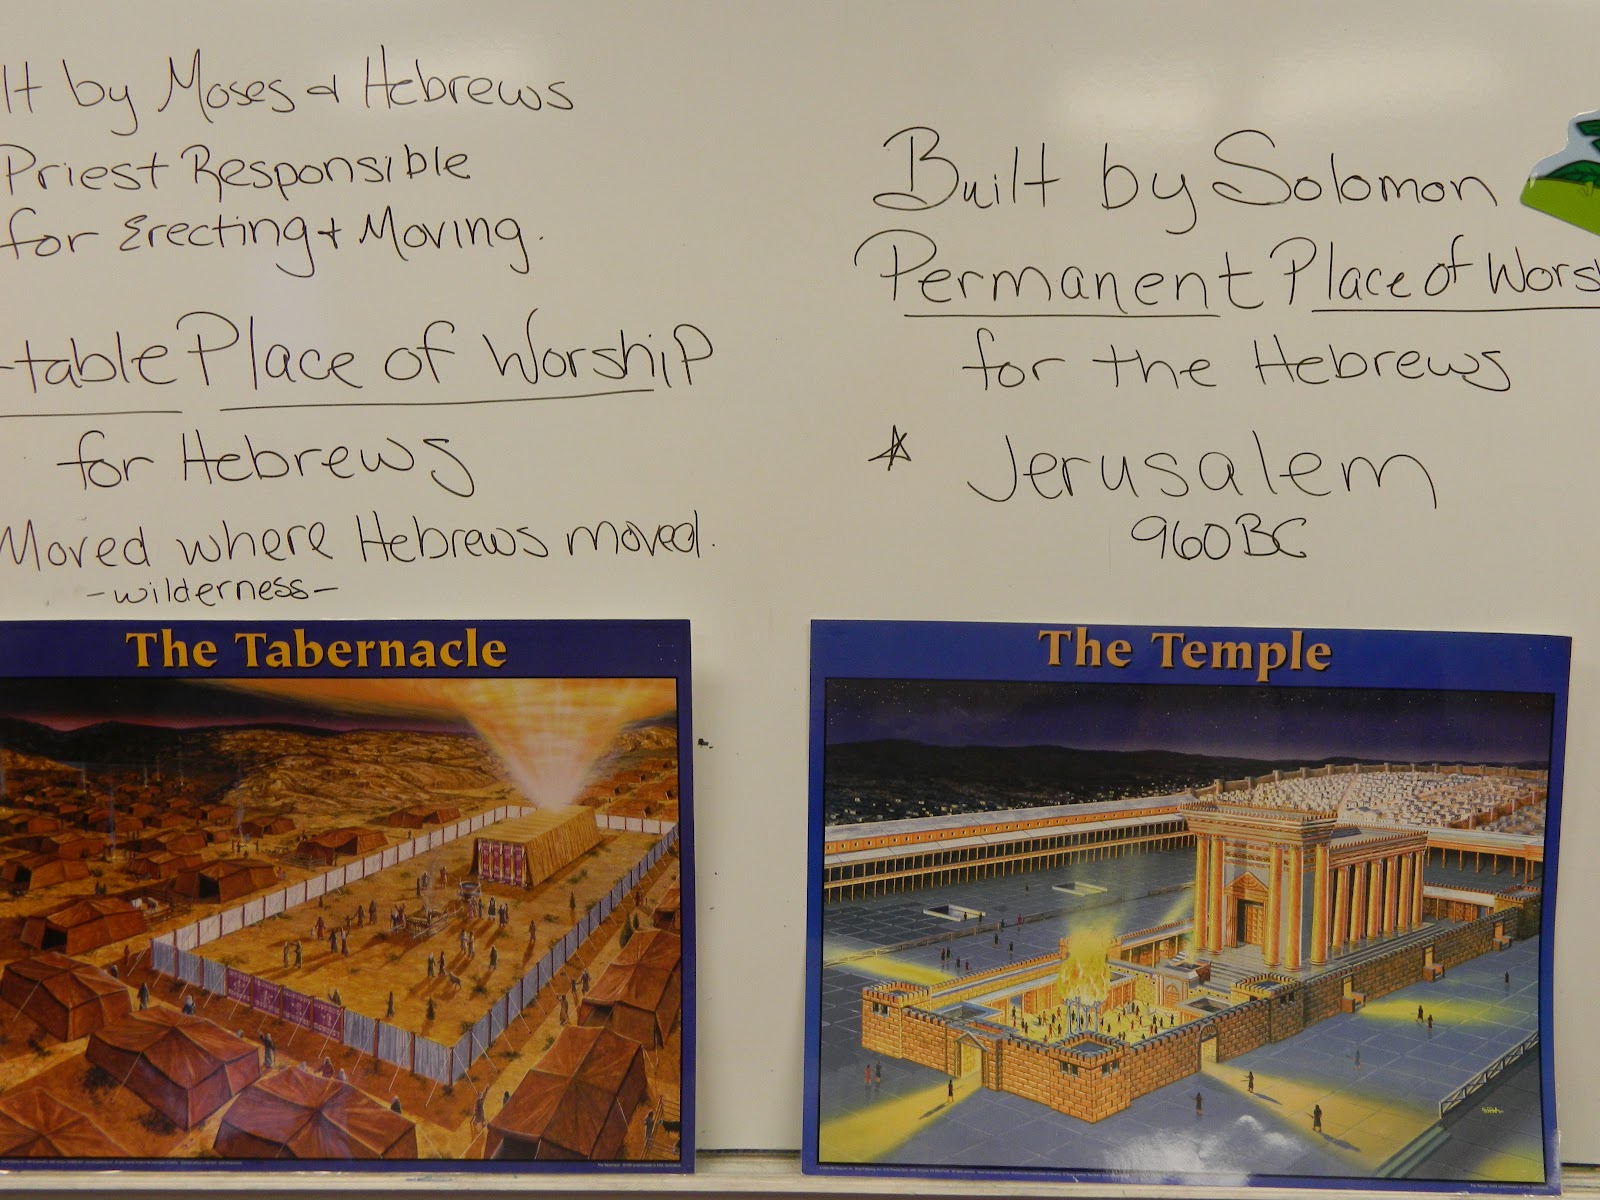 lt by Moses & Hebrews
Priest Responsible
for Erecting & Moving.
-table Place of Worship
for Hebrews
Moved where Hebrews moved.
-wilderness-
The Tabernacle
Built by Solomon
Permanent Place of Wors
for the Hebrews
Jerusalem
960 BC
The Temple